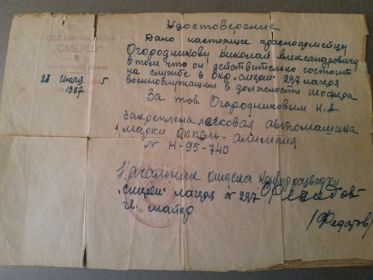 Удостоверение
Дано настоящее красноармейцу
Огородникову Николай Александровичу
в том что он действительно состоит
на службе в
военнослужащим в должности шофера
За тов. Огородниковым Н.А.
закреплена легковая автомашина
марки оппель-олимпия
№ Н-95-740
Начальник отдела контрразведки
"Смерш" лагеря № 297
гв. майор
(Федотов)
"СМЕРШ"
28